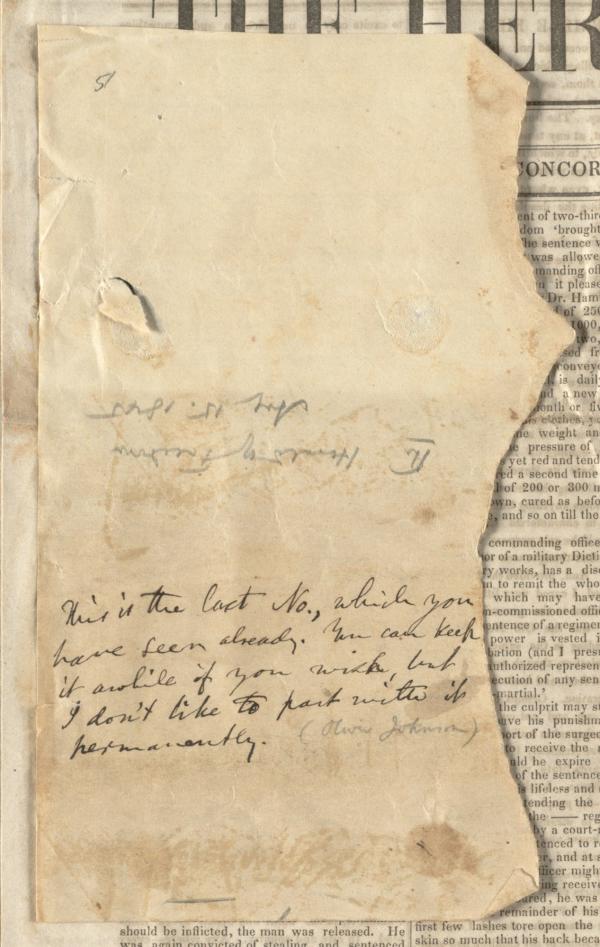 THE HER
5
CONCOR
This is the last No., which you
have seen already. You can keep
it awhile if you wish, but
I don't like to part with it
permanently.
(Oliver Johnson)
Herald of Freedom
15. 1845
ent of two-thir
dom 'brought
he sentence
was allowe
manding off
it please
Dr. Ham
of 250
1000,
two,
sed fr
conveye
is dail
and a new
onth or
clothes,
e weight an
e pressure of
yet red and tend
ed a second time
of 200 or 300
own, cured as befo
e, and so on till the
commanding office
or of a military Dicti
ry works, has a disc
n to remit the who
which may have
n-commissioned offic
entence of a regimen
power is vested i
pation (and I pres
authorized represen
ecution of any sen
-martial.'
the culprit may st
ave his punishm
port of the surgeo
to receive the
uld he expire
of the sentence
is lifeless and
tending the
the — reg
by a court-
tenced to re
er, and at s
fficer might
ing receive
ured, he was
remainder of his
should be inflicted, the man was released. He
was again convicted of stealing, and sentenced
first few lashes tore open the
skin so much that his back bec